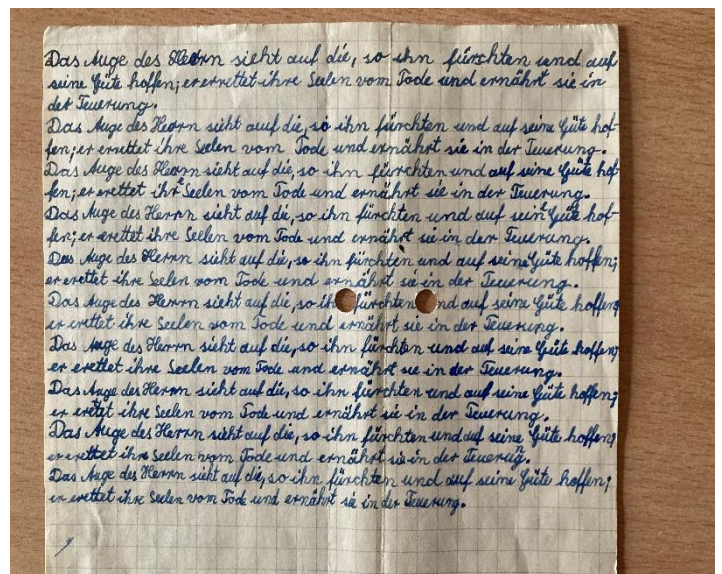 Das Auge des Herrn sieht auf die, so ihn fürchten und auf
seine Güte hoffen; er errettet ihre Seelen vom Tode und ernährt sie in
der Teuerung.
Das Auge des Herrn sieht auf die, so ihn fürchten und auf seine Güte hof-
fen; er errettet ihre Seelen vom Tode und ernährt sie in der Teuerung.
Das Auge des Herrn sieht auf die, so ihn fürchten und auf seine Güte hof-
fen; er erettet ihr Seelen vom Tode und ernährt sie in der Teuerung.
Das Auge des Herrn sieht auf die, so ihn fürchten und auf seine Güte hof-
fen; er erettet ihre Seelen vom Tode und ernährt sie in der Teuerung.
Das Auge des Herrn sieht auf die, so ihn fürchten und auf seine Güte hoffen;
er erettet ihre Seelen vom Tode und ernährt sie in der Teuerung.
Das Auge des Herrn sieht auf die, so ihn fürchten und auf seine Güte hoffen;
er erettet ihre Seelen vom Tode und ernährt sie in der Teuerung.
Das Auge des Herrn sieht auf die, so ihn fürchten und auf seine Güte hoffen;
er erettet ihre Seelen vom Tode und ernährt sie in der Teuerung.
Das Auge des Herrn sieht auf die, so ihn fürchten und auf seine Güte hoffen;
er eretet ihre Seelen vom Tode und ernährt sie in der Teuerung.
Das Auge des Herrn sieht auf die, so ihn fürchten und auf seine Güte hoffen;
er erettet ihre Seelen vom Tode und ernährt sie in der Teuerung.
Das Auge des Herrn sieht auf die, so ihn fürchten und auf seine Güte hoffen;
er erettet ihre Seelen vom Tode und ernährt sie in der Teuerung.